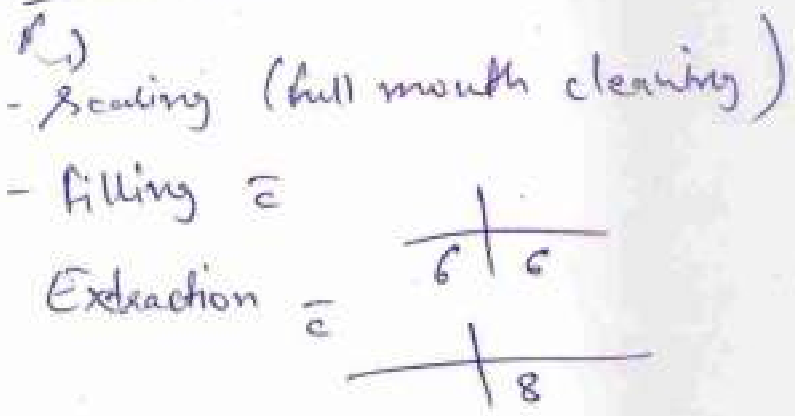 - Scaling (full mouth cleaning)
- Filling c̄
6 | 6
Extraction c̄
8